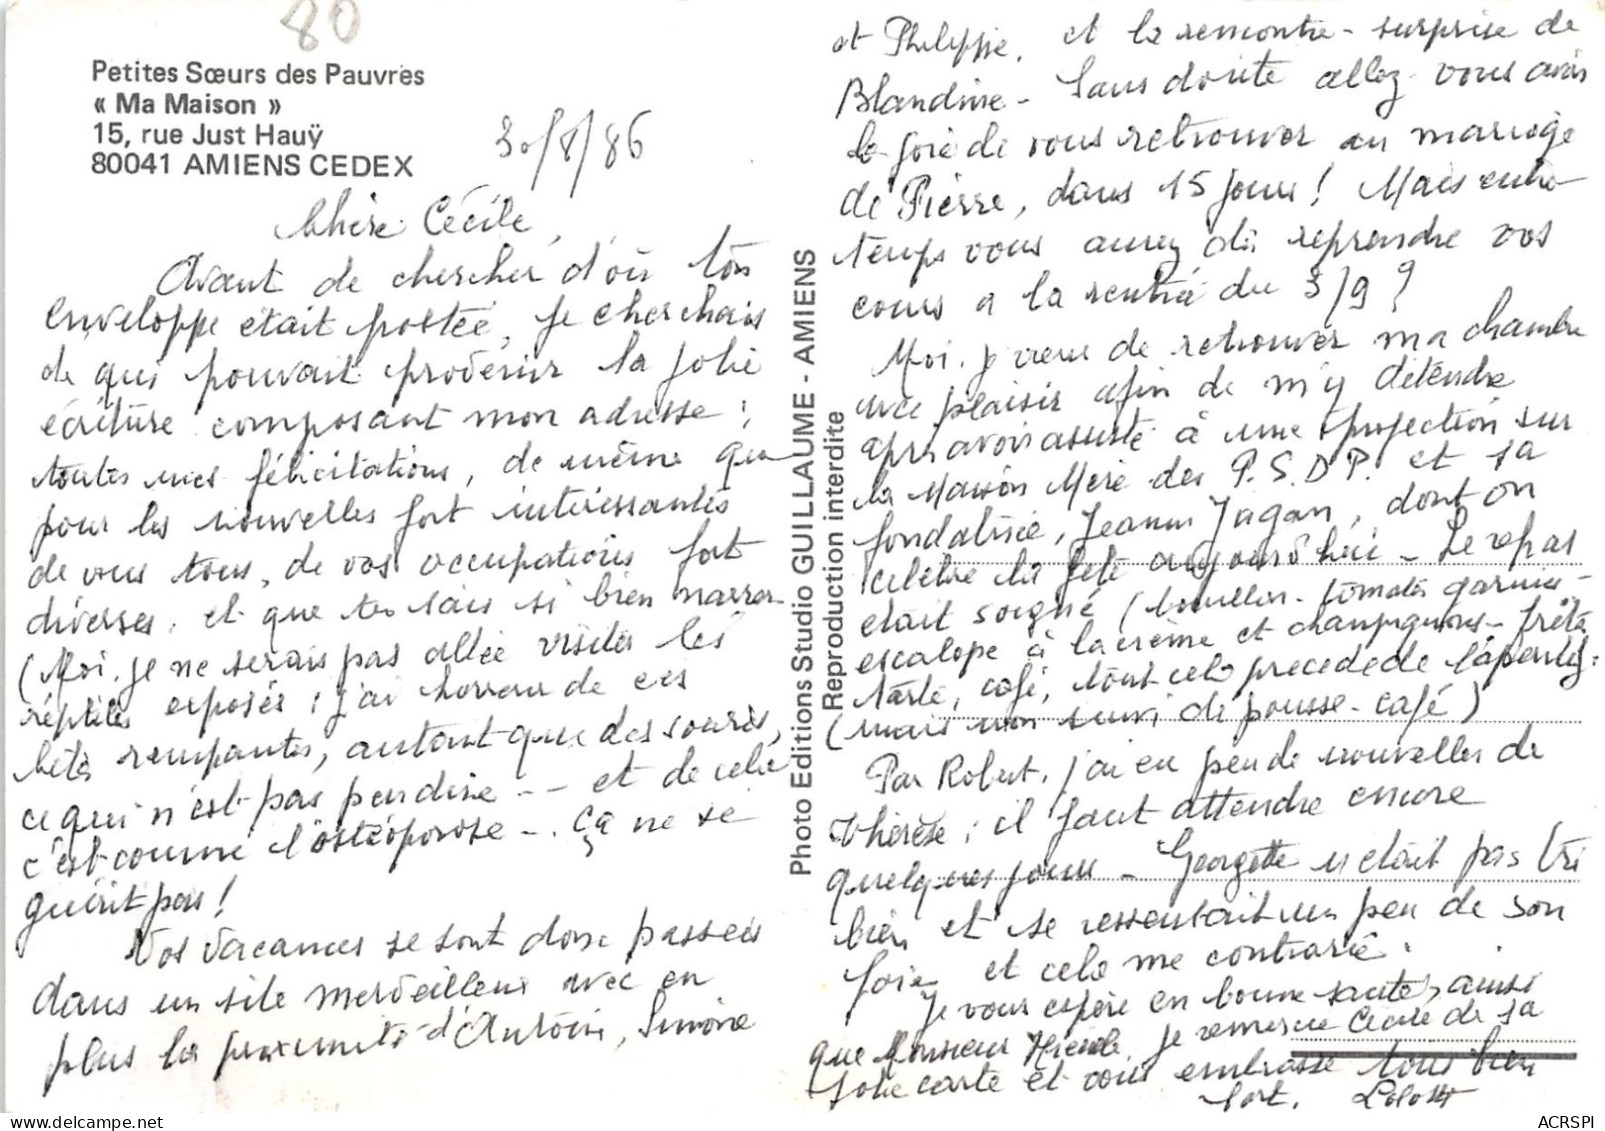 80
Petites Sœurs des Pauvres
« Ma Maison »
15, rue Just Hauÿ
80041 AMIENS CEDEX
30/8/86
Chère Cécile,
Avant de chercher d'où ton
enveloppe était postée, je cherchais
de qui pouvait provenir la jolie
écriture composant mon adresse ;
toutes mes félicitations, de même que
pour les nouvelles fort intéressantes
de vous tous, de vos occupations fort
diverses, et que tu sais si bien narrer
(Moi, je ne serais pas allée visiter les
réptiles exposés ; j'ai horreur de ces
bêtes rempantes, autant que des souris,
ce qui n'est pas peu dire -- et de celie
c'est comme l'ostéoporose -. ça ne se
guérit pas !
Vos vacances se sont donc passées
dans un site merveilleux avec en
plus la proximité d'Antoine, Simone
Photo Editions Studio GUILLAUME - AMIENS
Reproduction interdite
et Philippe, et la rencontre - surprise de
Blandine - Sans doute allez-vous avoir
la joie de vous retrouver au mariage
de Pierre, dans 15 jours ! Mais entre-
temps vous aurez dû reprendre vos
cours à la rentrée du 3/9 ?
Moi, je viens de retrouver ma chambre
avec plaisir afin de m'y détendre
après avoir assisté à une projection sur
la Maison Mère des P.S.D.P. et sa
fondatrice, Jeanne Jugan, dont on
célèbre la fête aujourd'hui - Le repas
était soigné (bouillon - tomates garnies -
escalope à la crème et champignons - frites
tarte, café, tout cela précédé de l'apéritif -
(mais non suivi de pousse-café)
Par Robert, j'ai eu peu de nouvelles de
Thérèse ; il faut attendre encore
quelques jours - Georgette n'était pas très
bien et se ressentait un peu de son
foie et cela me contrarie.
Je vous espère en bonne santé, ainsi
que Monsieur, je remercie Cécile de sa
jolie carte et vous embrasse tous bien
fort. Lolotte
ACRSPI